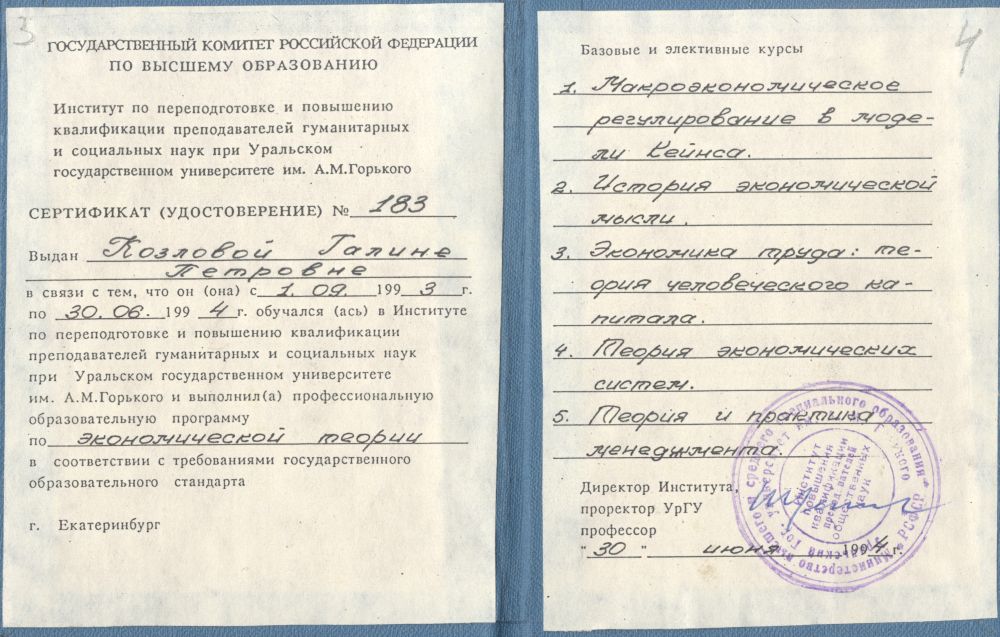 3
ГОСУДАРСТВЕННЫЙ КОМИТЕТ РОССИЙСКОЙ ФЕДЕРАЦИИ
ПО ВЫСШЕМУ ОБРАЗОВАНИЮ
Институт по переподготовке и повышению
квалификации преподавателей гуманитарных
и социальных наук при Уральском
государственном университете им. А.М.Горького
СЕРТИФИКАТ (УДОСТОВЕРЕНИЕ) № 183
Выдан Козловой Галине
Петровне
в связи с тем, что он (она) с 1.09. 1993 г.
по 30.06. 1994 г. обучался (ась) в Институте
по переподготовке и повышению квалификации
преподавателей гуманитарных и социальных наук
при Уральском государственном университете
им. А.М.Горького и выполнил(а) профессиональную
образовательную программу
по экономической теории
в соответствии с требованиями государственного
образовательного стандарта
г. Екатеринбург
4
Базовые и элективные курсы
1. Макроэкономическое
регулирование в моде-
ли Кейнса.
2. История экономической
мысли.
3. Экономика труда: те-
ория человеческого ка-
питала.
4. Теория экономических
систем.
5. Теория и практика
менеджмента.
Директор Института,
проректор УрГУ
профессор
"30" июня 1994 г.
Министерство высшего и среднего специального образования РСФСР
институт
повышения
квалификации
преподавателей
общественных
наук